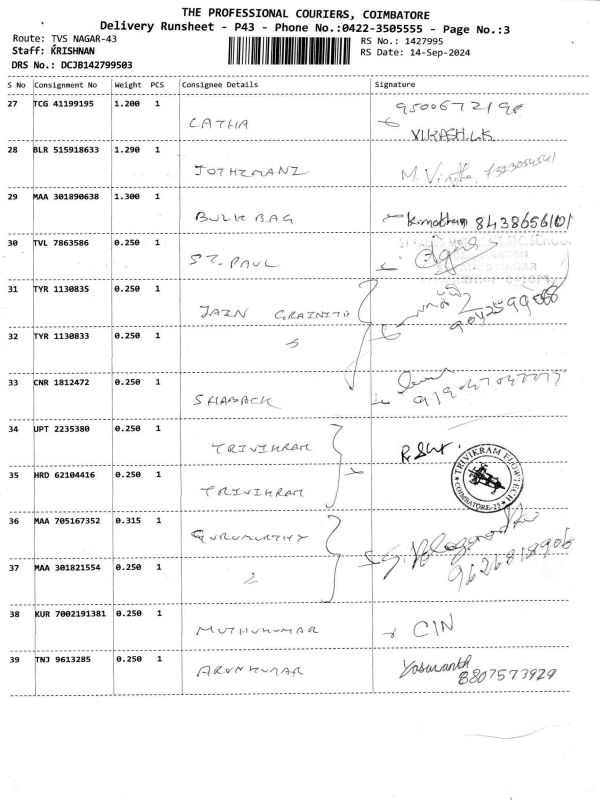 THE PROFESSIONAL COURIERS, COIMBATORE
Delivery Runsheet - P43 - Phone No.:0422-3505555 - Page No.:3
Route: TVS NAGAR-43
Staff: KRISHNAN
DRS No.: DCJB142799503
RS No.: 1427995
RS Date: 14-Sep-2024
S No Consignment No Weight PCS Consignee Details Signature
27 TCG 41199195 1.200 1 LATHA 9500672196
VIKASH.L.K
28 BLR 515918633 1.290 1 JOTHIMANI M. 7323054541
29 MAA 301890638 1.300 1 BULK BAG 8438656101
30 TVL 7863586 0.250 1 ST. PAUL
31 TYR 1130835 0.250 1 JAIN GRAINITE
32 TYR 1130833 0.250 1
33 CNR 1812472 0.250 1
34 UPT 2235380 0.250 1 TRIVIKRAM
35 HRD 62104416 0.250 1 TRIVIKRAM
TRIVIKRAM FLOWTECH
COIMBATORE-25
36 MAA 705167352 0.315 1 GURUMURTHY
37 MAA 301821554 0.250 1
38 KUR 7002191381 0.250 1 MUTHUKUMAR CIN
39 TNJ 9613285 0.250 1 ARUNKUMAR Yaswanth
8807573929